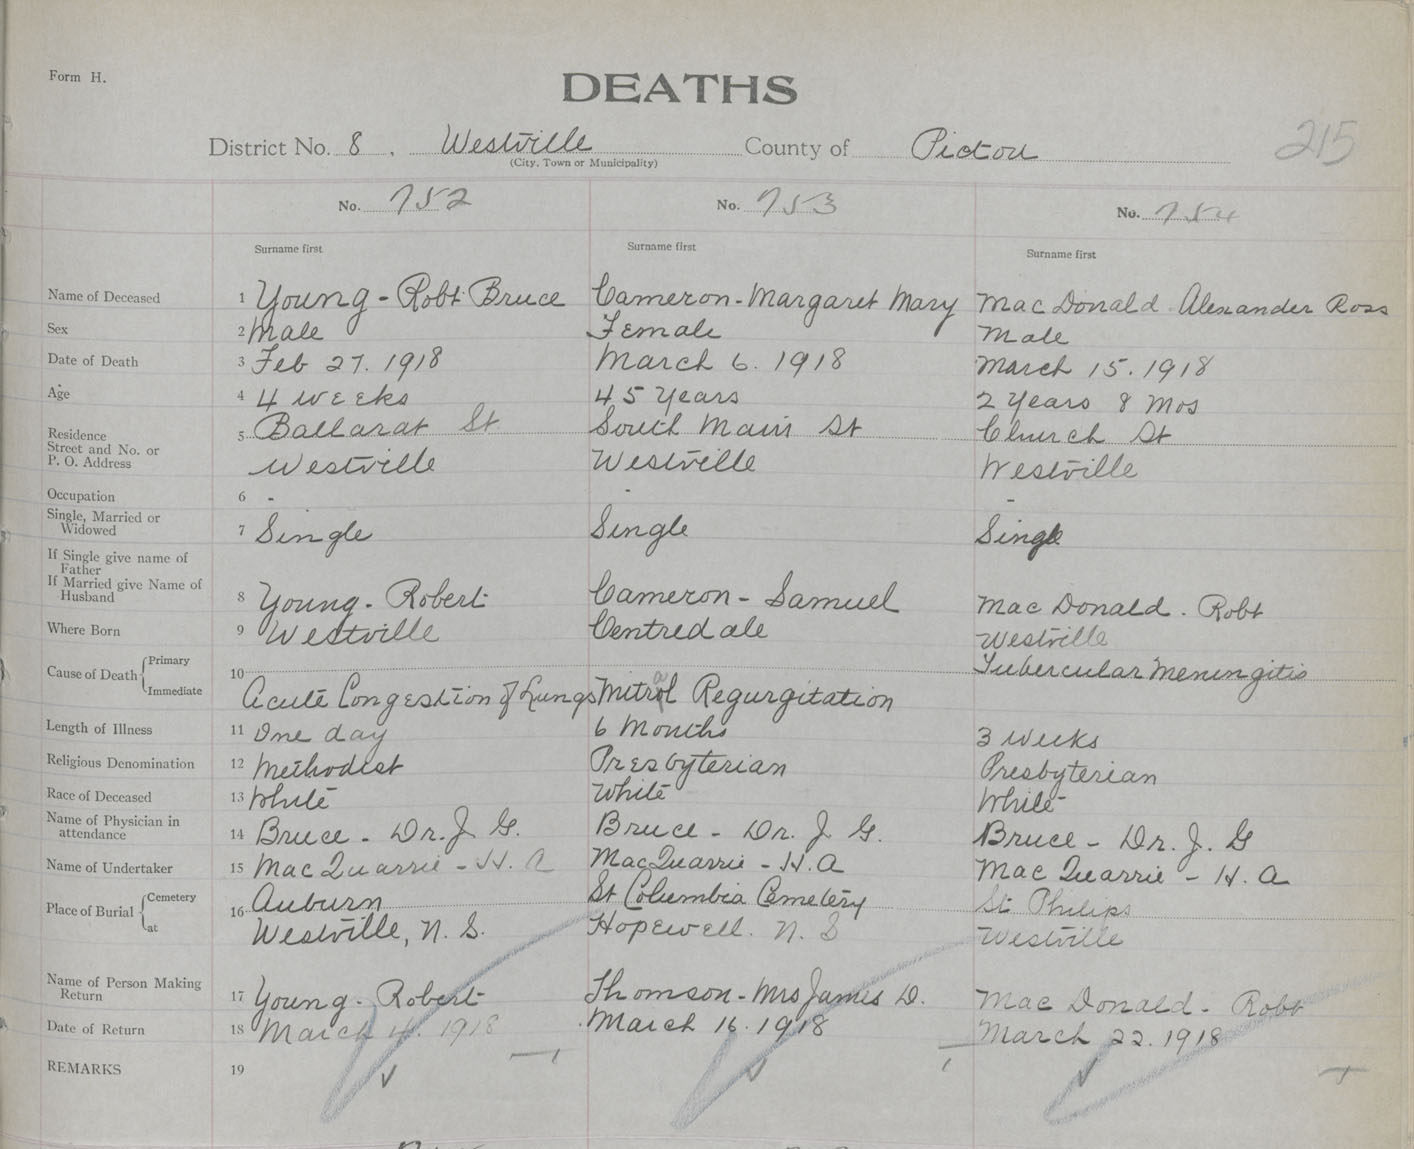 Form H.
DEATHS
215
District No. 8, Westville County of Pictou
(City, Town or Municipality)
No. 752 No. 753 No. 754
Surname first Surname first Surname first
Name of Deceased 1 Young - Robt Bruce Cameron - Margaret Mary MacDonald Alexander Ross
Sex 2 Male Female Male
Date of Death 3 Feb 27. 1918 March 6. 1918 March 15. 1918
Age 4 4 weeks 45 Years 2 Years 8 Mos
Residence
Street and No. or 5 Ballarat St South Main St Church St
P. O. Address Westville Westville Westville
Occupation 6 - - -
Single, Married or
Widowed 7 Single Single Single
If Single give name of
Father
If Married give Name of
Husband 8 Young - Robert Cameron - Samuel MacDonald - Robt
Where Born 9 Westville Centredale Westville
Cause of Death Primary 10 Tubercular Meningitis
Immediate Acute Congestion of Lungs Mitral Regurgitation
Length of Illness 11 One day 6 Months 3 weeks
Religious Denomination 12 Methodist Presbyterian Presbyterian
Race of Deceased 13 White White White
Name of Physician in
attendance 14 Bruce - Dr. J G. Bruce - Dr. J G. Bruce - Dr. J. G
Name of Undertaker 15 MacQuarrie - H. A MacQuarrie - H. A MacQuarrie - H. A
Place of Burial Cemetery 16 Auburn St Columbia Cemetery St Philips
at Westville, N. S. Hopewell. N. S Westville
Name of Person Making
Return 17 Young - Robert Thomson - Mrs James D. MacDonald - Robt
Date of Return 18 March 4. 1918 March 16. 1918 March 22. 1918
REMARKS 19